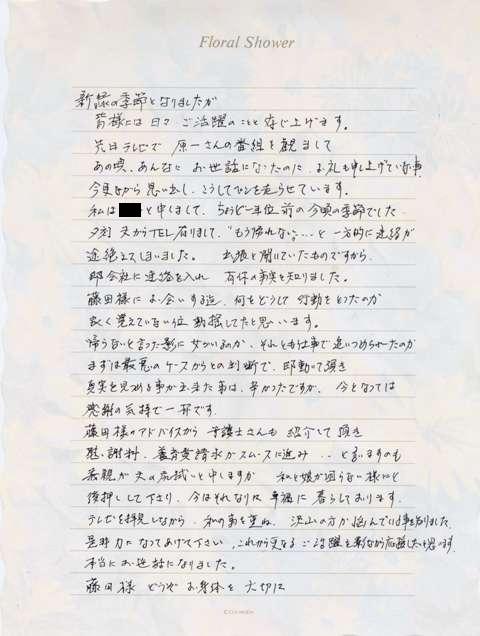 Floral Shower
新緑の季節となりましたが
皆様には日々ご活躍のことと存じ上げます。
先日テレビで 原一さんの番組を観まして
あの時、あんなにお世話になったのに、お礼も申し上げていない事
今更ながら思い出し、こうしてペンを走らせています。
私は と申しまして、ちょうど一年位前の今頃の季節でした
夕刻 夫からTEL有りまして、"もう帰れない…"と一方的に連絡が
途絶えてしまいました。 出張と聞いていたものですから、
即会社に連絡を入れ 有休の事実を知りました。
藤田様にお会いする迄、何をどうして行動をとったのか
良く覚えていない位動揺してたと思います。
帰らないと言った影に女がいるのか、それとも仕事で追いつめられたのか
まずは最悪のケースからとの判断で、即動いて頂き
真実を見つめる事が出来た事は、辛かったですが、今となっては
感謝の気持で一杯です
藤田様のアドバイスから弁護士さんも紹介して頂き
慰謝料、養育費請求がスムースに進み‥と言いますのも
義親が夫の尻拭いと申しますか 私と娘が困らない様にと
後押しして下さり、今はそれなりに幸福に暮らしております。
テレビを拝見しながら、私の事を重ね、沢山の方が悩んでいる事を知りました。
是非力になってあげて下さい。これから更なるご活躍を影ながら応援したいと思います
本当にお世話になりました。
藤田様 どうぞお身体を大切に